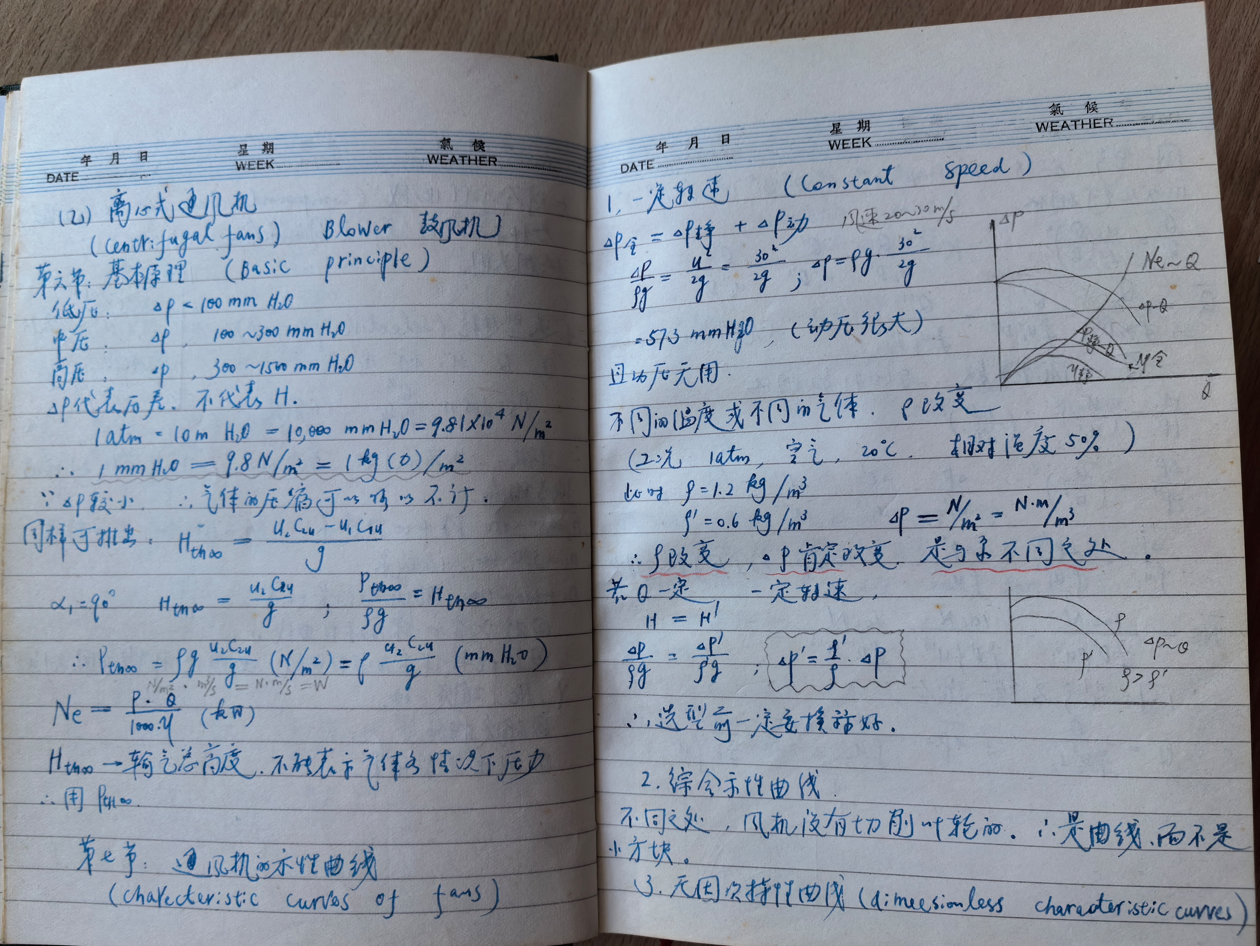 年 月 日
DATE
星 期
WEEK
氣 候
WEATHER
(乙) 离心式通风机
(centrifugal fans) Blower 鼓风机)
第六节: 基本原理 (Basic principle)
低压, ΔP < 100 mm H₂O
中压, ΔP, 100~300 mm H₂O
高压, ΔP, 300~1500 mm H₂O
ΔP代表压差, 不代表 H.
1atm = 10m H₂O = 10,000 mm H₂O = 9.81×10⁴ N/m²
∴ 1 mm H₂O = 9.8 N/m² = 1 kg(力)/m²
∵ ΔP较小 ∴气体的压缩可以略以不计.
同样可推出, Hth∞ = (u₂C₂u − u₁C₁u)/g
α₁=90° Hth∞ = u₂C₂u/g ; Pth∞/ρg = Hth∞
∴ Pth∞ = ρg u₂C₂u/g (N/m²) = ρ u₂C₂u/g (mm H₂O)
N/m² · m³/s = N·m/s = W
Ne = P·Q/1000·η (kW)
Hth∞ → 输气总高度, 不能表示气体各情况下压力
∴ 用 Pth∞
第七节: 通风机的示性曲线
(charecteristic curves of fans)
年 月 日
DATE
星 期
WEEK
氣 候
WEATHER
1, 一定转速 (Constant speed)
ΔP全 = ΔP静 + ΔP动 风速20~30m/s
ΔP/ρg = u²/2g = 30²/2g ; ΔP=ρg·30²/2g
=573 mm H₂O, (动压很大)
且动压无用.
ΔP
Ne~Q
ΔP-Q
ΔP静-Q
η全
η静
Q
不同的温度或不同的气体, ρ改变
(工况 1atm, 空气, 20℃, 相对湿度50%)
此时 ρ=1.2 kg/m³
ρ'=0.6 kg/m³ ΔP = N/m² = N·m/m³
∴ ρ改变, ΔP肯定改变, 是与泵不同之处.
若Q一定 一定转速,
H = H'
ΔP/ρg = ΔP'/ρ'g ; ΔP' = ρ'/ρ · ΔP
ρ
ρ'
ΔP~Q
ρ>ρ'
∴选型前一定要换算好.
2. 综合示性曲线
不同之处, 风机没有切削叶轮的. ∴是曲线, 而不是
小方块.
3. 无因次特性曲线 (dimecsionless characteristic curves)